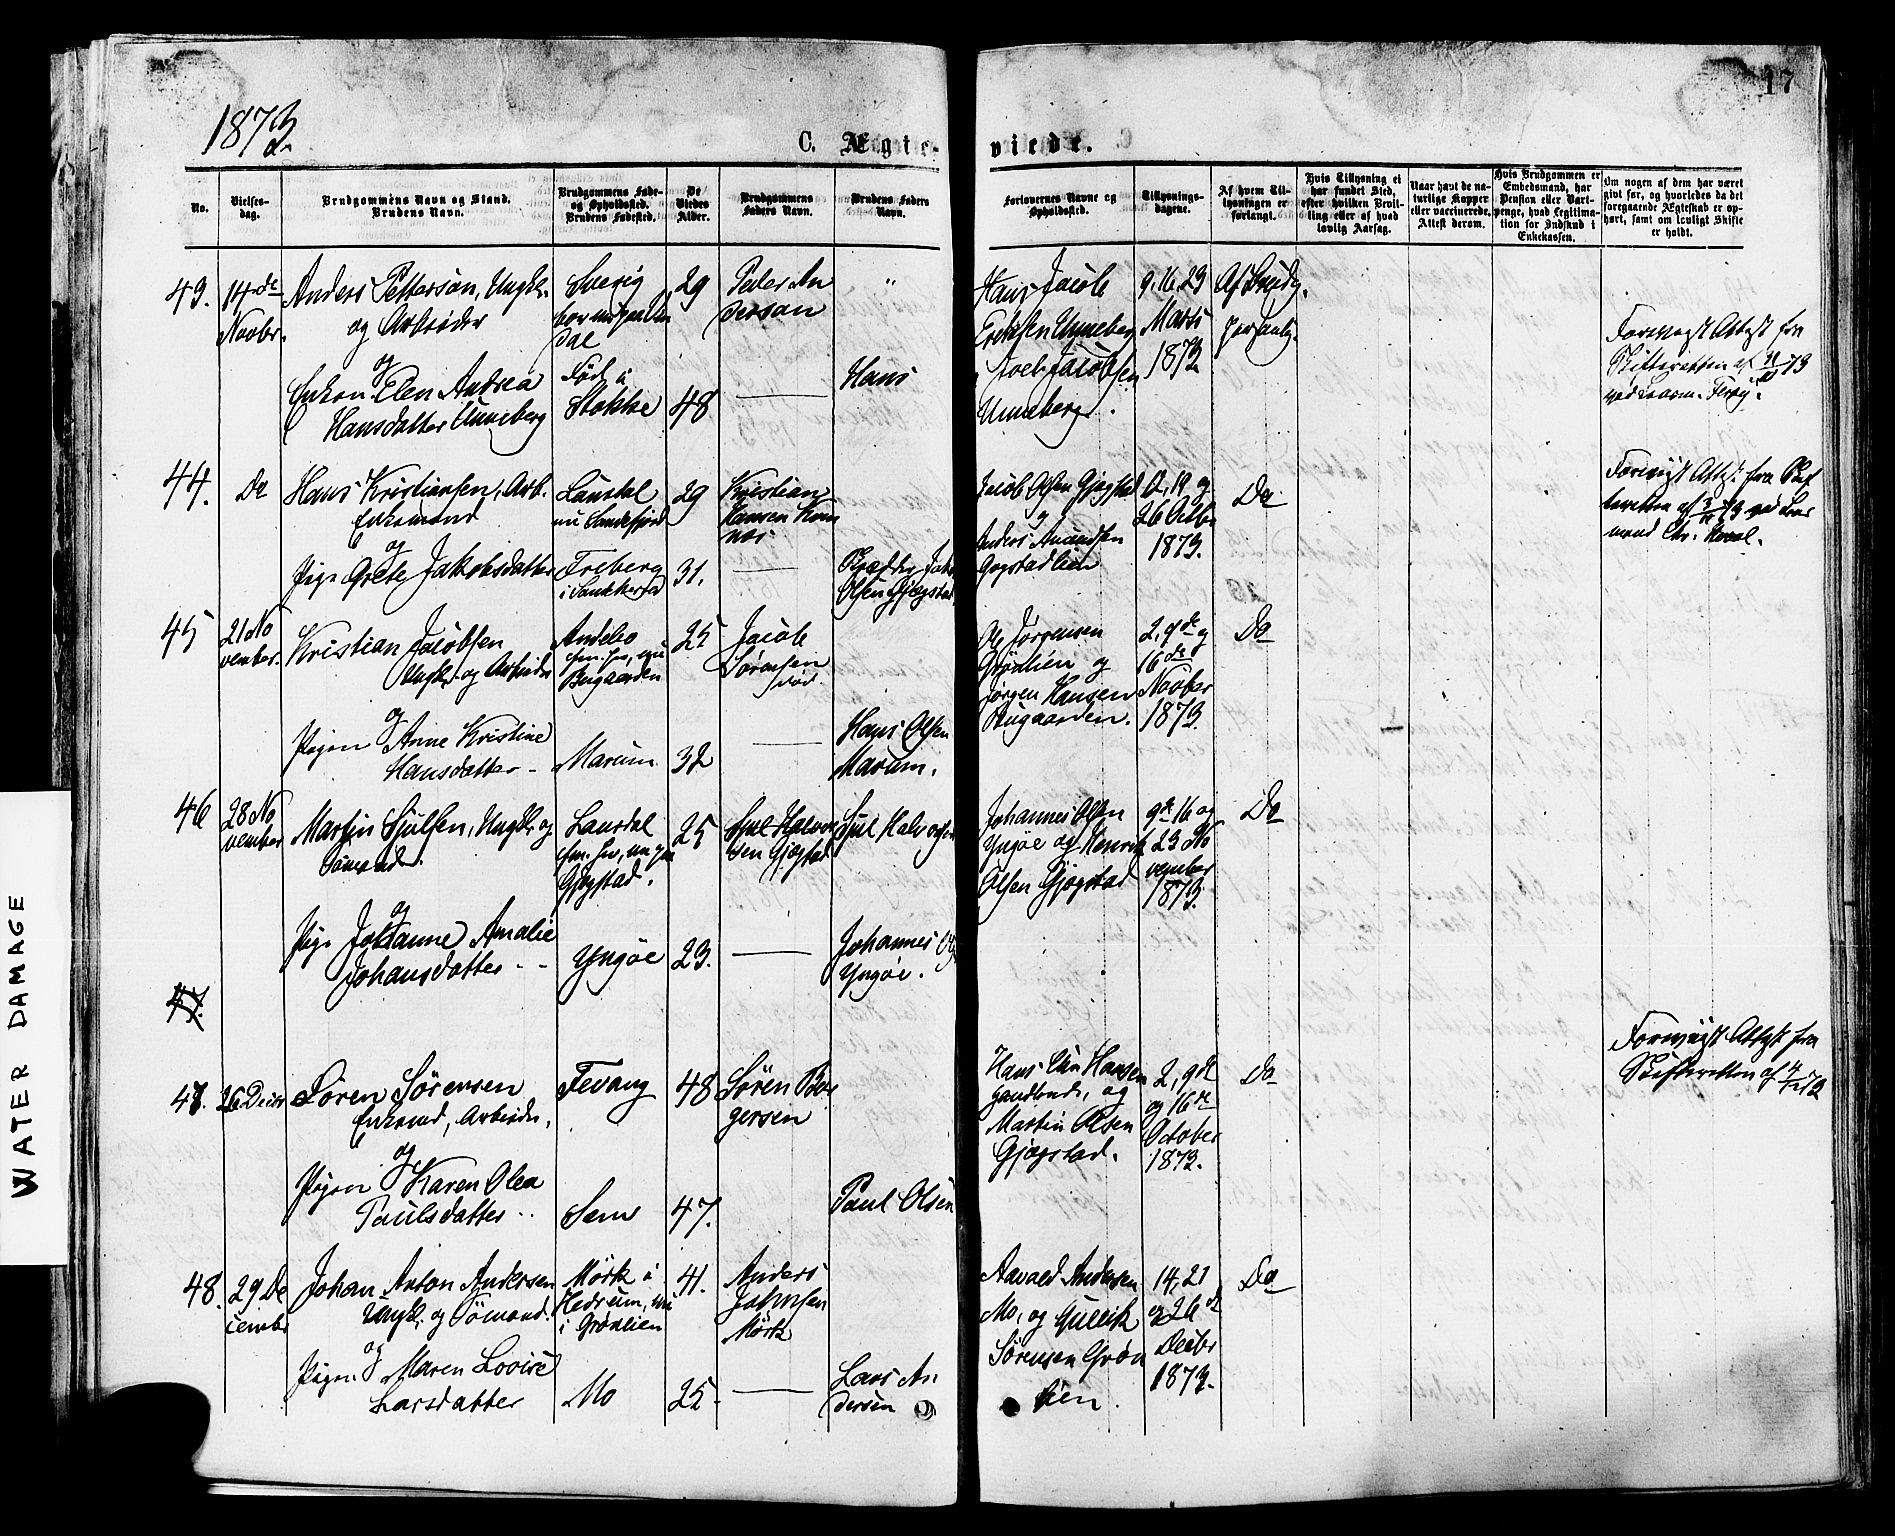 1873
17
C. Ægte-
viede.
No.
Vielses-
dag.
Brudgommens Navn og Stand.
Brudens Navn.
Brudgommens Føde-
og Opholdssted.
Brudens Fødested.
De
Viedes
Alder.
Brudgommens
Faders Navn.
Brudens Faders
Navn.
Forlovernes Navne og
Opholdssted.
Tillysnings-
dagene.
Af hvem Til-
lysningen er
forlangt.
Hvis Tillysning ei
har fundet Sted,
efter hvilken Bevil-
ling eller af hvad
lovlig Aarsag.
Naar havt de na-
turlige Kopper
eller vaccinerede,
Attest derom.
Hvis Brudgommen er
Embedsmand, har
Pension eller Vart-
penge, hvad Legitima-
tion for Indskud i
Enkekassen.
Om nogen af dem har været
givt før, og hvorledes da det
foregaaende Ægteskab er op-
hørt, samt om lovligt Skifte
er holdt.
43.
14de
Novbr.
Anders Petterson, Ungkl.
og Arbeider
og
Enken Elen Andrea
Hansdatter Unneberg
Sverig
Fød i
Stokke
29
48
Peder An
derson
"
Hans
Hans Jacob
Eriksen Unneberg
Joel Jacobsen
Unneberg.
9, 16, 23
Marts
1873
Af Brudg.
Forevist Attest fra
Skifteretten af
44.
Do
Hans Kristiansen, Arb.
Enkemand
og
Pige Grete Jakobsdatter
Lausdal
nu Sandefjord
Freberg
i Sandeherred
29
31.
Kristian
Hansen
Olsen Gjøgstad
Jacob Olsen Gjøgstad
og
Anders Amundsen
Gogstadlien
12, 19 og
26 Octbr
1873.
Do
Forevist Attest fra Skif
teretten af
45
21 No
vember.
Kristian Jacobsen
Ungkl. og Arbeider
og
Pigen Anne Kristine
Hansdatter
Andebo
Bugaarden
Marum
25
32
Jacob
Sørensen
død.
Hans Olsen
Marum.
Ole Jørgensen
Grønlien og
Jørgen Hansen
Bugaarden.
2, 9de og
16de
Novber
1873.
Do
46
28 No
vember
Martin Sjulsen, Ungkl. og
Sømand.
og
Pige Johanne Amalie
Johansdatter
Lausdal
Gjøgstad.
Yngøe
25
23.
Sjul Halvor
sen Gjøgstad
Sjul Halvorsen
Johannes
Yngøe.
Johannes Olsen
Yngøe og Henrik
Olsen Gjøgstad
9de 16 og
23 No
vember
1873.
Do
47.
47. 26 Decbr
Søren Sørensen
Enkemd, Arbeider.
og
Pigen Karen Olea
Paulsdatter
Fevang
Sem
48
47.
Søren Bør
gersen
Paul Olsen
Martin Olsen
Gjøgstad.
2, 9de
og 16de
October
1873.
Do
Forevist Attest fra
Skifteretten af
48.
29 De
cembr
Johan Anton Andersen
Ungkl. og Sømand.
og
Pigen Maren Lovise
Larsdatter
Mørk i
Hedrum, nu
i Grønlien
Mo
41.
25.
Anders
Johnsen
Mørk
Lars An
dersen
Aavald Andersen
Mo, og Gullik
Sørensen Grøn
lien.
14, 21
og 26de
Decbr
1873.
Do
WATER DAMAGE